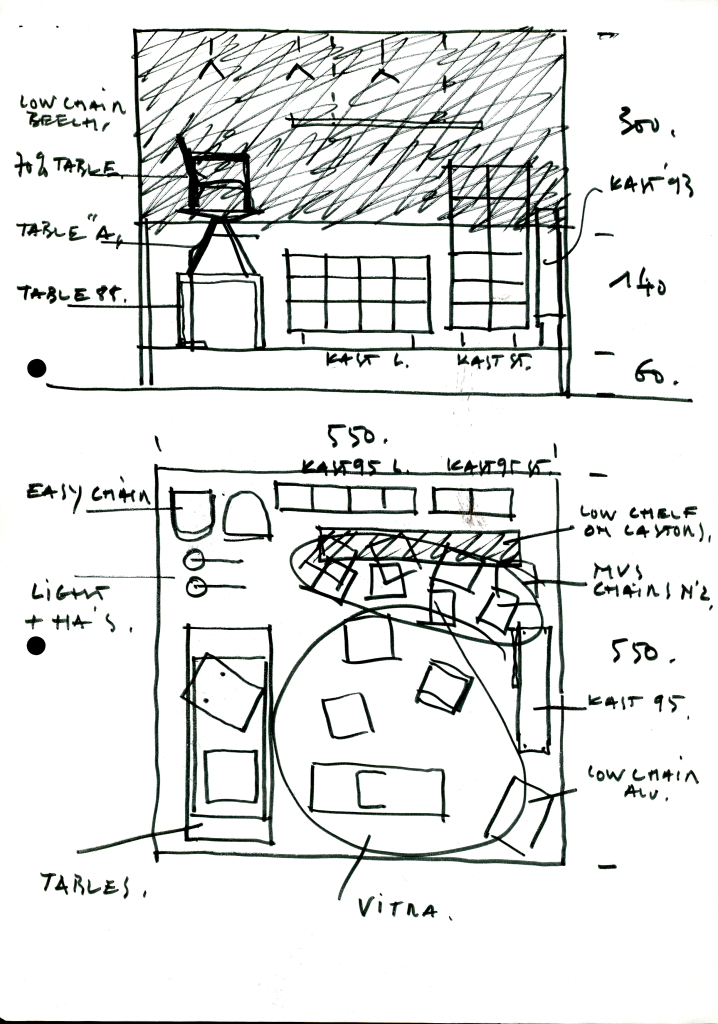 LOW CHAIR
BEECH.
300.
70% TABLE
KAST '93
TABLE "A,
140
TABLE 88.
KAST L.
KAST ST.
60.
550.
KAST 95 L.
KAST 95 ST.
EASY CHAIR
LOW CHELF
ON CASTORS,
LIGHT
+ HA'S.
MVS
CHAIRS N'2,
550.
KAST 95.
LOW CHAIR
ALU.
TABLES.
VITRA.